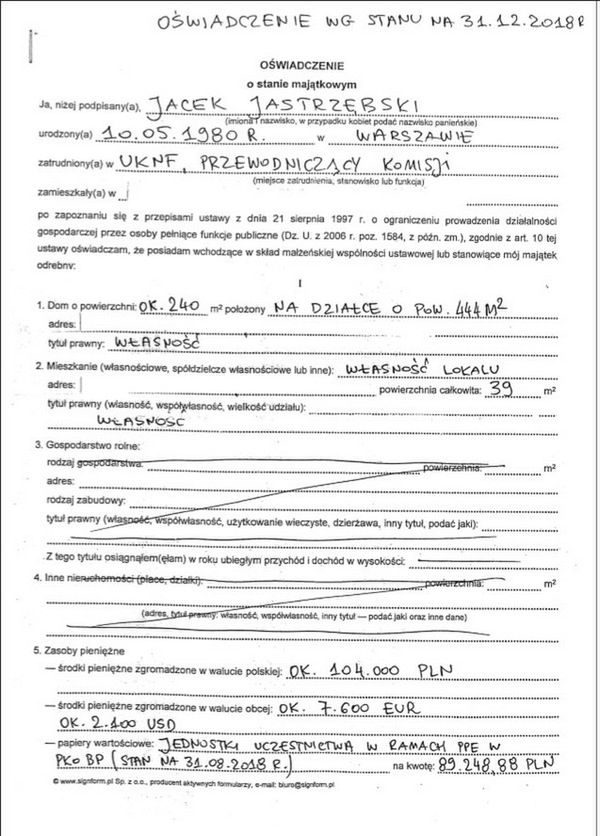 OŚWIADCZENIE WG STANU NA 31.12.2018R
OŚWIADCZENIE
o stanie majątkowym
Ja, niżej podpisany(a), JACEK JASTRZĘBSKI
(imiona i nazwisko, w przypadku kobiet podać nazwisko panieńskie)
urodzony(a) 10.05.1980 R. w WARSZAWIE
zatrudniony(a) w UKNF, PRZEWODNICZĄCY KOMISJI
(miejsce zatrudnienia, stanowisko lub funkcja)
zamieszkały(a) w
po zapoznaniu się z przepisami ustawy z dnia 21 sierpnia 1997 r. o ograniczeniu prowadzenia działalności
gospodarczej przez osoby pełniące funkcje publiczne (Dz. U. z 2006 r. poz. 1584, z późn. zm.), zgodnie z art. 10 tej
ustawy oświadczam, że posiadam wchodzące w skład małżeńskiej wspólności ustawowej lub stanowiące mój majątek
odrębny:
I
1. Dom o powierzchni: OK. 240 m² położony NA DZIAŁCE O POW. 444 M²
adres:
tytuł prawny: WŁASNOŚĆ
2. Mieszkanie (własnościowe, spółdzielcze własnościowe lub inne): WŁASNOŚĆ LOKALU
adres: powierzchnia całkowita: 39 m²
tytuł prawny (własność, współwłasność, wielkość udziału):
WŁASNOŚĆ
3. Gospodarstwo rolne:
rodzaj gospodarstwa: powierzchnia: m²
adres:
rodzaj zabudowy:
tytuł prawny (własność, współwłasność, użytkowanie wieczyste, dzierżawa, inny tytuł, podać jaki):
Z tego tytułu osiągnąłem(ęłam) w roku ubiegłym przychód i dochód w wysokości:
4. Inne nieruchomości (place, działki): powierzchnia: m²
(adres, tytuł prawny: własność, współwłasność, inny tytuł — podać jaki oraz inne dane)
5. Zasoby pieniężne
— środki pieniężne zgromadzone w walucie polskiej: OK. 104.000 PLN
— środki pieniężne zgromadzone w walucie obcej: OK. 7.600 EUR
OK. 2.100 USD
— papiery wartościowe: JEDNOSTKI UCZESTNICTWA W RAMACH PPE W
PKO BP (STAN NA 31.08.2018 R.) na kwotę: 89.248,88 PLN
© www.signform.pl Sp. z o.o., producent aktywnych formularzy, e-mail: biuro@signform.pl